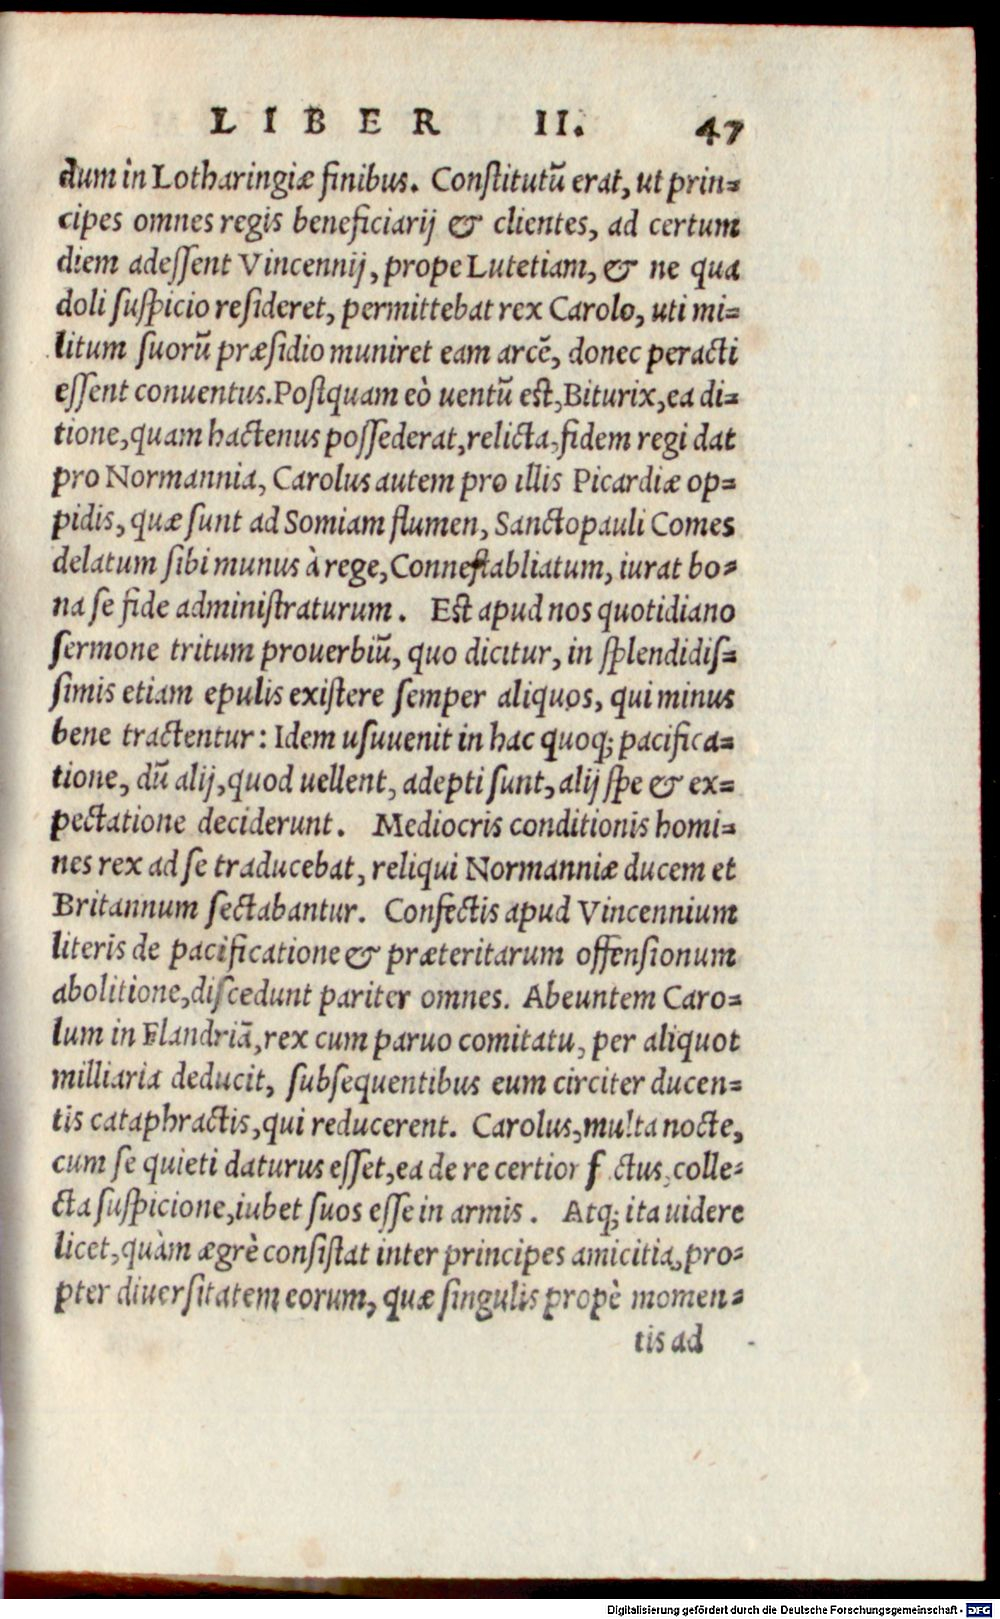 LIBER II. 47
dum in Lotharingiæ finibus. Constitutũ erat, ut prin=
cipes omnes regis beneficiarij & clientes, ad certum
diem adessent Vincennij, prope Lutetiam, & ne qua
doli suspicio resideret, permittebat rex Carolo, uti mi=
litum suorũ præsidio muniret eam arcẽ, donec peracti
essent conuentus. Postquam eò uentũ est, Biturix, ea di=
tione, quam hactenus possederat, relicta, fidem regi dat
pro Normannia, Carolus autem pro illis Picardiæ op=
pidis, quæ sunt ad Somiam flumen, Sanctopauli Comes
delatum sibi munus à rege, Connestabliatum, iurat bo=
na se fide administraturum. Est apud nos quotidiano
sermone tritum prouerbiũ, quo dicitur, in splendidis=
simis etiam epulis existere semper aliquos, qui minus
bene tractentur: Idem usuuenit in hac quoq; pacifica=
tione, dũ alij, quod uellent, adepti sunt, alij spe & ex=
pectatione deciderunt. Mediocris conditionis homi=
nes rex ad se traducebat, reliqui Normanniæ ducem et
Britannum sectabantur. Confectis apud Vincennium
literis de pacificatione & præteritarum offensionum
abolitione, discedunt pariter omnes. Abeuntem Caro=
lum in Flandriã, rex cum paruo comitatu, per aliquot
milliaria deducit, subsequentibus eum circiter ducen=
tis cataphractis, qui reducerent. Carolus, multa nocte,
cum se quieti daturus esset, ea de re certior f ctus, colle=
cta suspicione, iubet suos esse in armis. Atq; ita uidere
licet, quàm ægrè consistat inter principes amicitia, pro=
pter diuersitatem eorum, quæ singulis propè momen=
tis ad
Digitalisierung gefördert durch die Deutsche Forschungsgemeinschaft - DFG